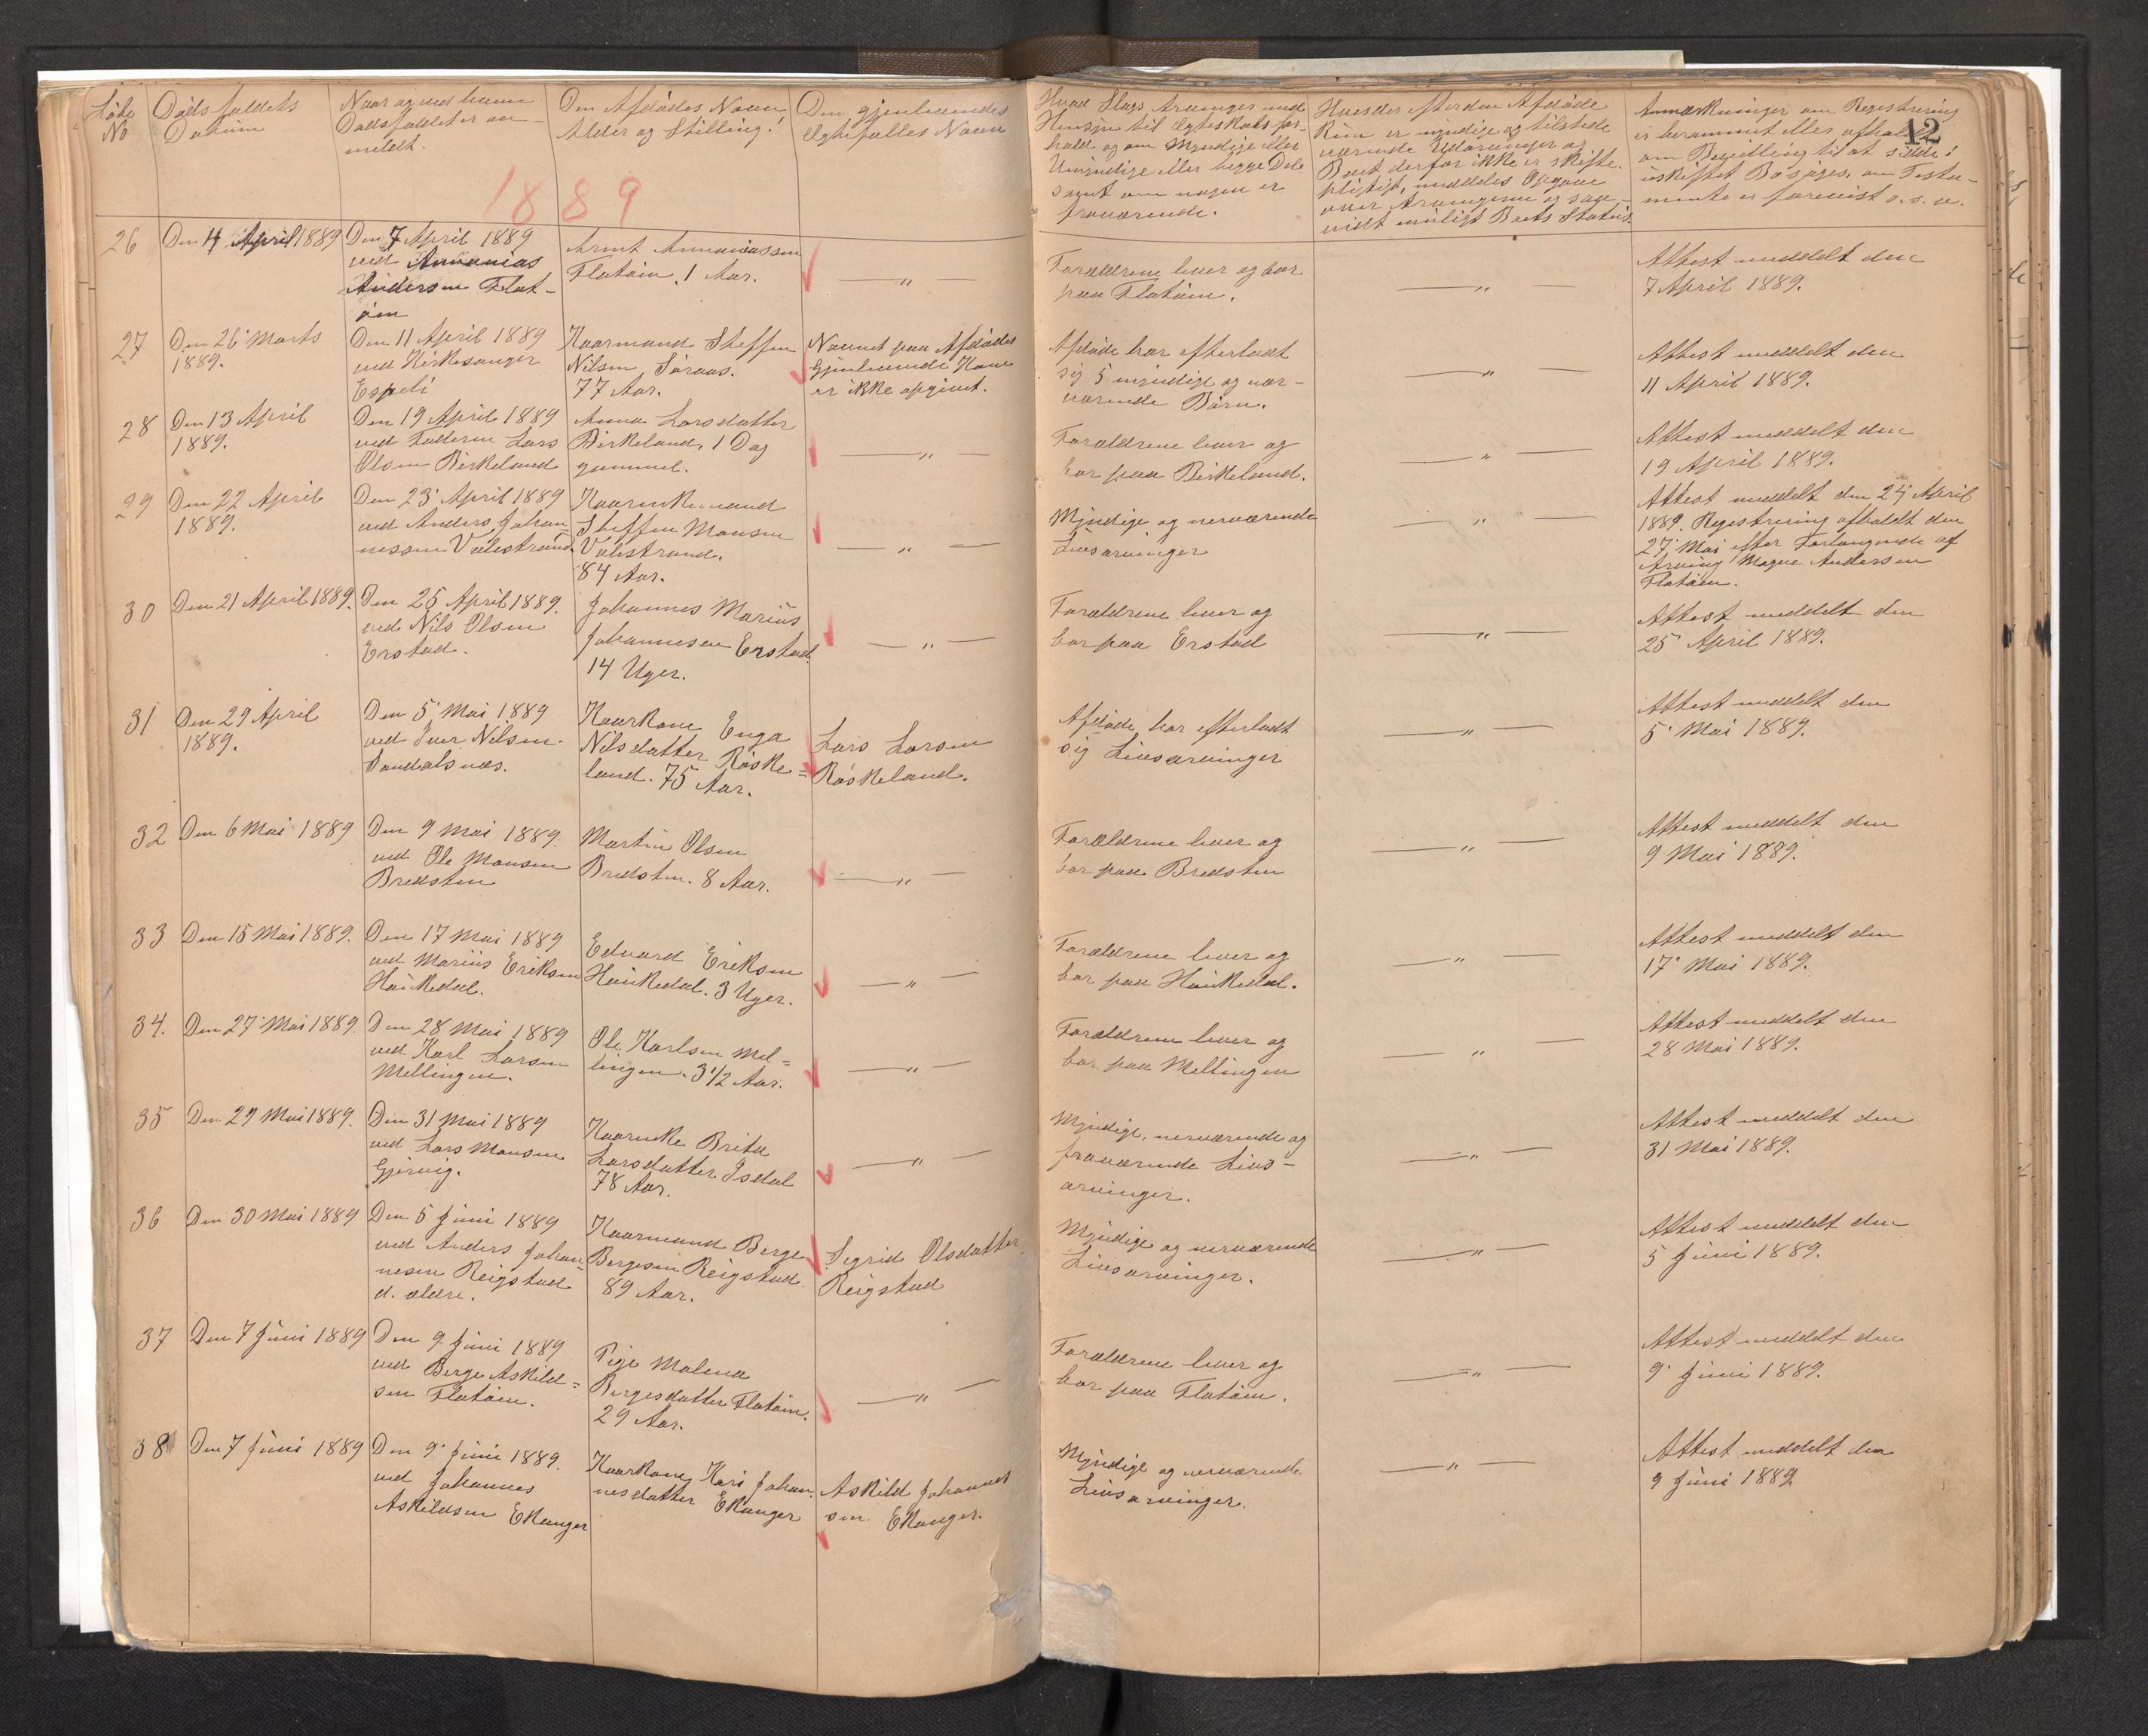 12
Löbe No
Dödsfaldets Datum
Naar og ved hvem Dödsfaldet er anmeldt.
Den Afdödes Navn Alder og Stilling.
Den gjenlevendes Ægtefælles Navn
Hvad Slags Arvinger med Hensyn til Ægteskabsforhold og om Myndige eller Umyndige eller begge Dele samt om nogen er fraværende.
Hvis der efter den Afdöde Kun er myndige og tilstedeværende Udarvinger og Boet derfor ikke er skiftepligtigt, meddeles Opgave over Arvingerne og saavidt muligt Boets Status.
Anmærkninger om Registrering er berammet eller afholdt, om Bevilling til at sidde i uskiftet Bo söges, om Testamente er forevist o. s. v.
1889
26
Den 4 April 1889
Den 7 April 1889
ved Annanias
Andersen Flat-
öen
Arent Annaniassen
Flatöen. 1 Aar.
— " —
Forældrene lever og bor
paa Flatöen.
— " —
Attest meddelt den
7 April 1889.
27
Den 26 Marts
1889.
Den 11 April 1889
ved Kirkesanger
Espeli
Kaarmand Steffen
Nilsen Söraas.
77 Aar.
Navnet paa Afdödes
Gjenlevende Kone
er ikke opgivet.
Afdöde har efterladt
sig 5 myndige og nær-
værende Börn.
— " —
Attest meddelt den
11 April 1889.
28
Den 13 April
1889.
Den 19 April 1889
ved Faderen Lars
Olsen Birkeland
Anna Larsdatter
Birkeland, 1 Dag
gammel.
— " —
Forældrene lever og
bor paa Birkeland.
— " —
Attest meddelt den
19 April 1889.
29
Den 22 April
1889.
Den 23 April 1889
ved Anders Johan-
nessen Valestrand
Kaarenkemand
Steffen Monsen
Valestrand.
84 Aar.
— " —
Myndige og nerværende
Livsarvinger
— " —
Attest meddelt den 24 April
1889. Registrering afholdt den
27 Mai efter Forlangende af
Arving Magne Andersen
Flatöen.
30
Den 21 April 1889.
Den 25 April 1889.
ved Nils Olsen
Erstad.
Johannes Marius
Johannesen Erstad
14 Uger.
— " —
Forældrene lever og
bor paa Erstad
— " —
Attest meddelt den
25 April 1889.
31
Den 29 April
1889.
Den 5 Mai 1889
ved Iver Nilsen
Sandalsnæs.
Kaarkone Enga
Nilsdatter Röske=
land. 75 Aar.
Lars Larsen
Röskeland.
Afdöde har efterladt
sig Livsarvinger
— " —
Attest meddelt den
5 Mai 1889.
32
Den 6 Mai 1889
Den 9 Mai 1889.
ved Ole Monsen
Bredsten
Martin Olsen
Bredsten. 8 Aar.
— " —
Forældrene lever og
bor paa Bredsten
— " —
Attest meddelt den
9 Mai 1889.
33
Den 15 Mai 1889.
Den 17 Mai 1889
ved Marius Eriksen
Haukedal.
Edvard Eriksen
Haukedal. 3 Uger.
— " —
Forældrene lever og
bor paa Haukedal.
— " —
Attest meddelt den
17 Mai 1889.
34.
Den 27 Mai 1889.
Den 28 Mai 1889
ved Karl Larsen
Mellingen.
Ole Karlsen Mel=
lingen. 3 1/2 Aar.
— " —
Forældrene lever og
bor paa Mellingen
— " —
Attest meddelt den
28 Mai 1889.
35
Den 29 Mai 1889.
Den 31 Mai 1889
ved Lars Monsen
Gjervig.
Kaarenke Brita
Larsdatter Isdal
78 Aar.
— " —
Myndige, nerværende og
fraværende Livs-
arvinger.
— " —
Attest meddelt den
31 Mai 1889.
36
Den 30 Mai 1889
Den 5 Juni 1889
ved Anders Johan-
nesen Reigstad
d. ældre.
Kaarmand Berge
Bergesen Reigstad.
89 Aar.
Sigrid Olsdatter
Reigstad
Myndige og nerværende
Livsarvinger.
— " —
Attest meddelt den
5 Juni 1889.
37
Den 7 Juni 1889
Den 9 Juni 1889
ved Berge Askild=
sen Flatöen.
Pige Malena
Bergesdatter Flatöen.
29 Aar.
— " —
Forældrene lever og
bor paa Flatöen.
— " —
Attest meddelt den
9 Juni 1889.
38
Den 7 Juni 1889
Den 9 Juni 1889.
ved Johannes
Askildsen Ekanger
Kaarkone Kari Johan-
nesdatter Ekanger
Askild Johannes
sen Ekanger.
Myndige og nerværende
Livsarvinger.
— " —
Attest meddelt den
9 Juni 1889